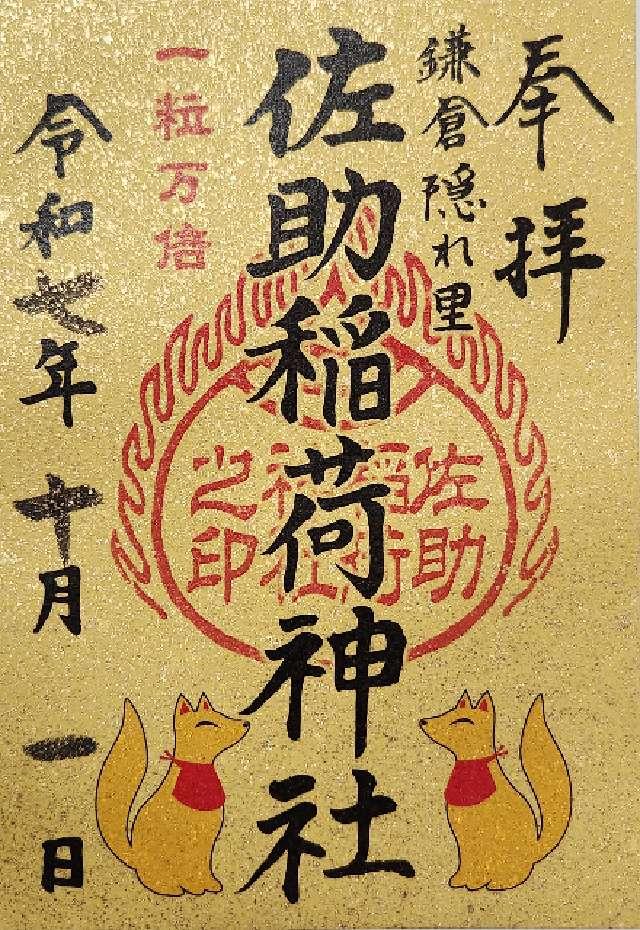 奉拝
鎌倉隠れ里
佐助稲荷神社
佐助
稲荷
神社
之印
一粒万倍
令和七年十月一日